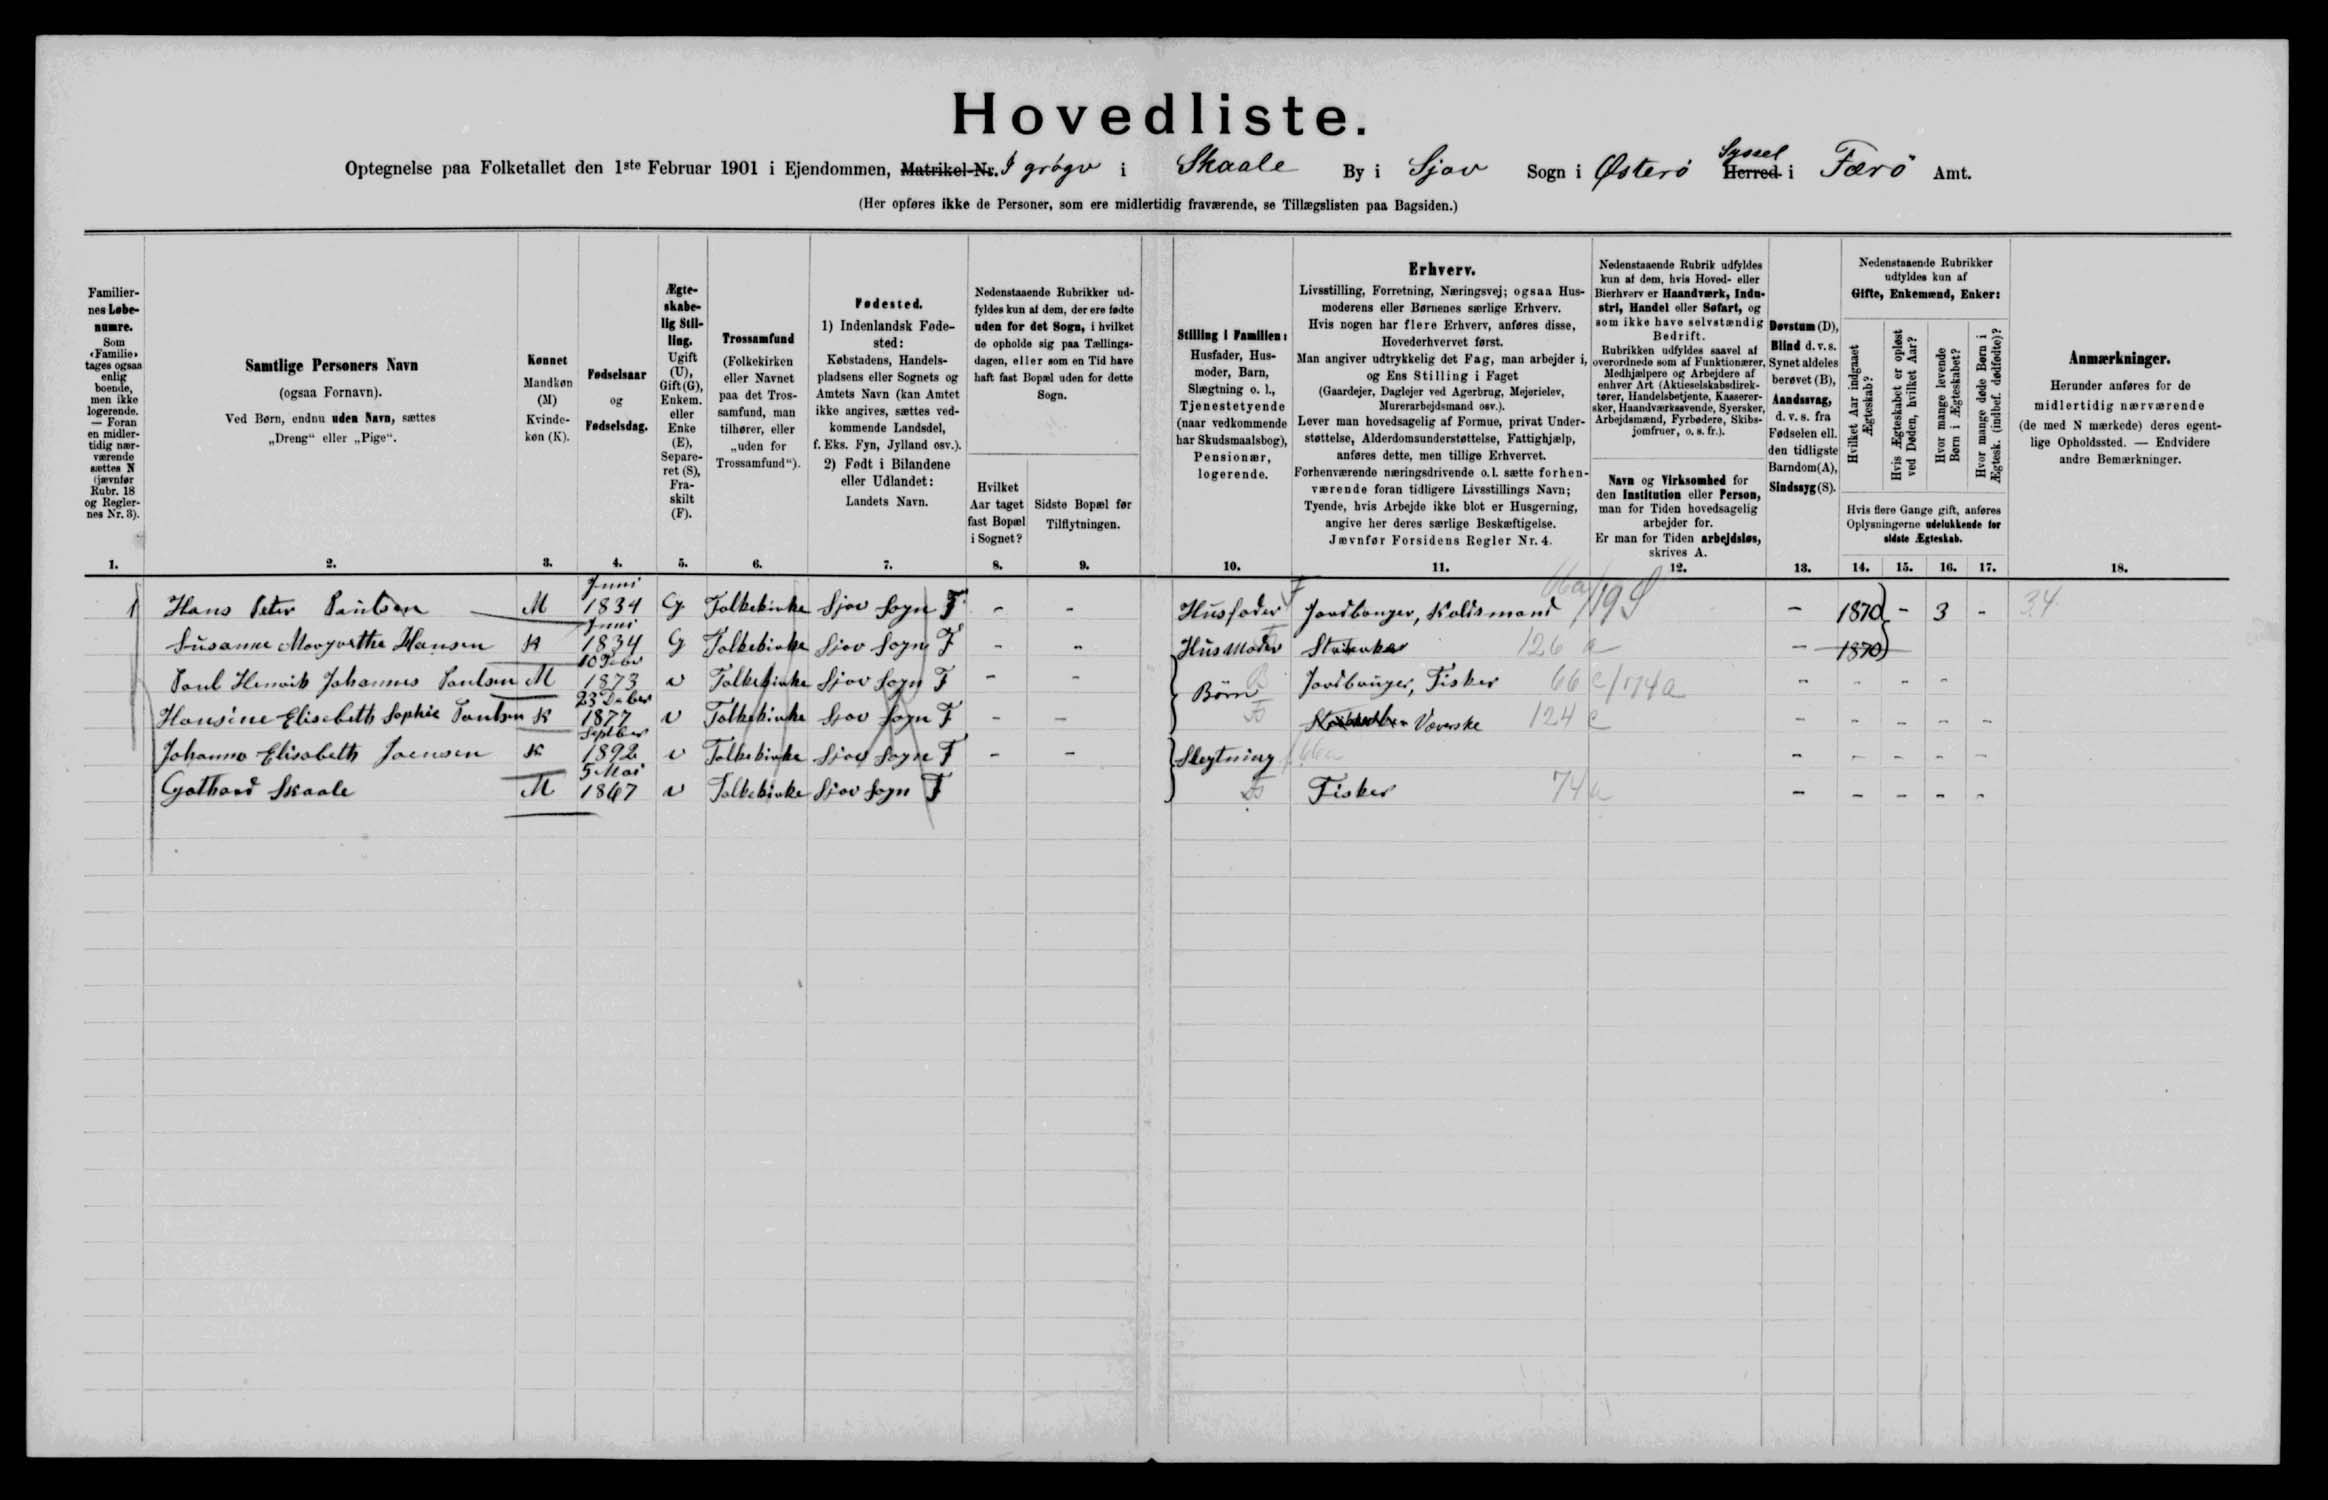 Hovedliste.
Optegnelse paa Folketallet den 1ste Februar 1901 i Ejendommen, Matrikel-Nr. I grøgv i Skaale By i Sjov Sogn i Østerö Herred Syssel i Færö Amt.
(Her opføres ikke de Personer, som ere midlertidig fraværende, se Tillægslisten paa Bagsiden.)
Familier-
nes Løbe-
numre.
Som
«Familie»
tages ogsaa
enlig
boende,
men ikke
logerende.
— Foran
en midler-
tidig nær-
værende
sættes N
(jævnfør
Rubr. 18
og Regler-
nes Nr. 3).
Samtlige Personers Navn
(ogsaa Fornavn).
Ved Børn, endnu uden Navn, sættes
„Dreng“ eller „Pige“.
Kønnet
Mandkøn
(M)
Kvinde-
køn (K).
Fødselsaar
og
Fødselsdag.
Ægte-
skabe-
lig Stil-
ling.
Ugift
(U),
Gift (G),
Enkem.
eller
Enke
(E),
Separe-
ret (S),
Fra-
skilt
(F).
Trossamfund
(Folkekirken
eller Navnet
paa det Tros-
samfund, man
tilhører, eller
„uden for
Trossamfund“).
Fødested.
1) Indenlandsk Føde-
sted:
Købstadens, Handels-
pladsens eller Sognets og
Amtets Navn (kan Amtet
ikke angives, sættes ved-
kommende Landsdel,
f. Eks. Fyn, Jylland osv.).
2) Født i Bilandene
eller Udlandet:
Landets Navn.
Nedenstaaende Rubrikker ud-
fyldes kun af dem, der ere fødte
uden for det Sogn, i hvilket
de opholde sig paa Tællings-
dagen, eller som en Tid have
haft fast Bopæl uden for dette
Sogn.
Hvilket
Aar taget
fast Bopæl
i Sognet?
Sidste Bopæl før
Tilflytningen.
Stilling i Familien:
Husfader, Hus-
moder, Barn,
Slægtning o. l.,
Tjenestetyende
(naar vedkommende
har Skudsmaalsbog),
Pensionær,
logerende.
Erhverv.
Livsstilling, Forretning, Næringsvej; ogsaa Hus-
moderens eller Børnenes særlige Erhverv.
Hvis nogen har flere Erhverv, anføres disse,
Hovederhvervet først.
Man angiver udtrykkelig det Fag, man arbejder i,
og Ens Stilling i Faget
(Gaardejer, Daglejer ved Agerbrug, Mejerielev,
Murerarbejdsmand osv.).
Lever man hovedsagelig af Formue, privat Under-
støttelse, Alderdomsunderstøttelse, Fattighjælp,
anføres dette, men tillige Erhvervet.
Forhenværende næringsdrivende o.l. sætte forhen-
værende foran tidligere Livsstillings Navn;
Tyende, hvis Arbejde ikke blot er Husgerning,
angive her deres særlige Beskæftigelse.
Jævnfør Forsidens Regler Nr. 4.
Nedenstaaende Rubrik udfyldes
kun af dem, hvis Hoved- eller
Bierhverv er Haandværk, Indu-
stri, Handel eller Søfart, og
som ikke have selvstændig
Bedrift.
Rubrikken udfyldes saavel af
overordnede som af Funktionærer,
Medhjælpere og Arbejdere af
enhver Art (Aktieselskabsdirek-
tører, Handelsbetjente, Kasserer-
sker, Haandværkssvende, Syersker,
Arbejdsmænd, Fyrbødere, Skibs-
jomfruer, o. s. fr.).
Navn og Virksomhed for
den Institution eller Person,
man for Tiden hovedsagelig
arbejder for.
Er man for Tiden arbejdsløs,
skrives A.
Døvstum (D),
Blind d. v. s.
Synet aldeles
berøvet (B),
Aandssvag,
d. v. s. fra
Fødselen ell.
den tidligste
Barndom (A),
Sindssyg (S).
Nedenstaaende Rubrikker
udfyldes kun af
Gifte, Enkemænd, Enker:
Hvilket Aar indgaaet
Ægteskab?
Hvis Ægteskabet er opløst
ved Døden, hvilket Aar?
Hvor mange levende
Børn i Ægteskabet?
Hvor mange døde Børn i
Ægtesk. (indbef. dødfødte)?
Hvis flere Gange gift, anføres
Oplysningerne udelukkende for
sidste Ægteskab.
Anmærkninger.
Herunder anføres for de
midlertidig nærværende
(de med N mærkede) deres egent-
lige Opholdssted. — Endvidere
andre Bemærkninger.
1. 2. 3. 4. 5. 6. 7. 8. 9. 10. 11. 12. 13. 14. 15. 16. 17. 18.
1 Hans Peter Paulsen M Juni 1834 G Folkekirke Sjov Sogn F - - Husfader F Jordbruger, Kaldsmand 66a/19 S - 1870 - 3 - 34
Susanne Margrethe Hansen K Juni 1834 G Folkekirke Sjov Sogn F - - Husmoder 126 a - 1870
Poul Henrik Johannes Poulsen M 10 Febr 1873 U Folkekirke Sjov Sogn F - - Børn B Jordbruger, Fisker 66 c/174a - - - -
Hansine Elisebeth Sophie Poulsen K 23 Decber 1877 U Folkekirke Sjov Sogn F - - Væverske 124 c - - - - -
Johanna Elisabeth Joensen K Septber 1892 U Folkekirke Sjov Sogn F - - Slegtning 66a - - - - -
Gothard Skaale M 5 Mai 1867 U Folkekirke Sjov Sogn F Fisker 74 a - - - - -